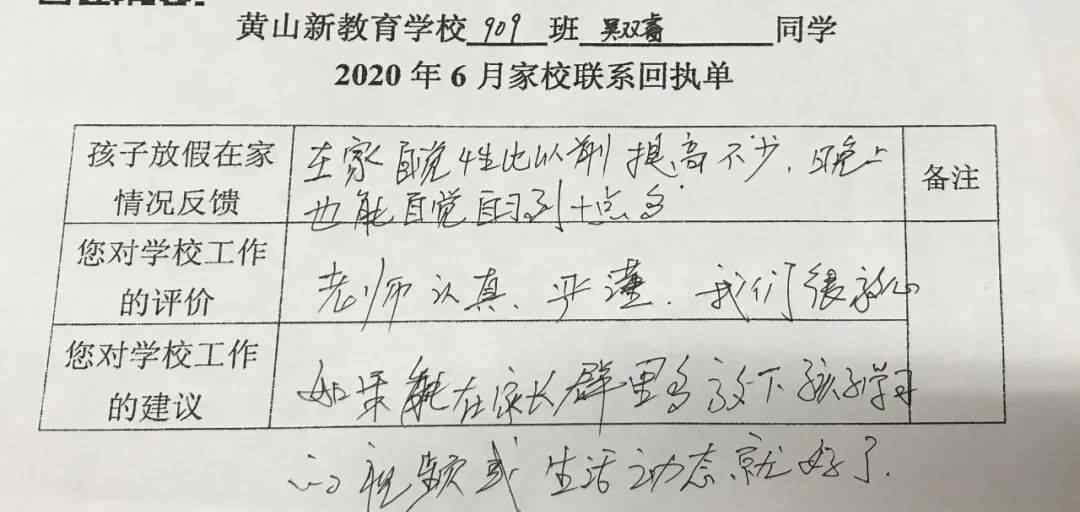 黄山新教育学校 909 班 吴双睿 同学
2020 年 6 月家校联系回执单
孩子放假在家
情况反馈
在家自觉性比以前提高不少，晚上
也能自觉自习到十点多
备注
您对学校工作
的评价
老师认真、严谨，我们很放心
您对学校工作
的建议
如果能在家长群里多放下孩子学习
的视频或生活动态就好了.